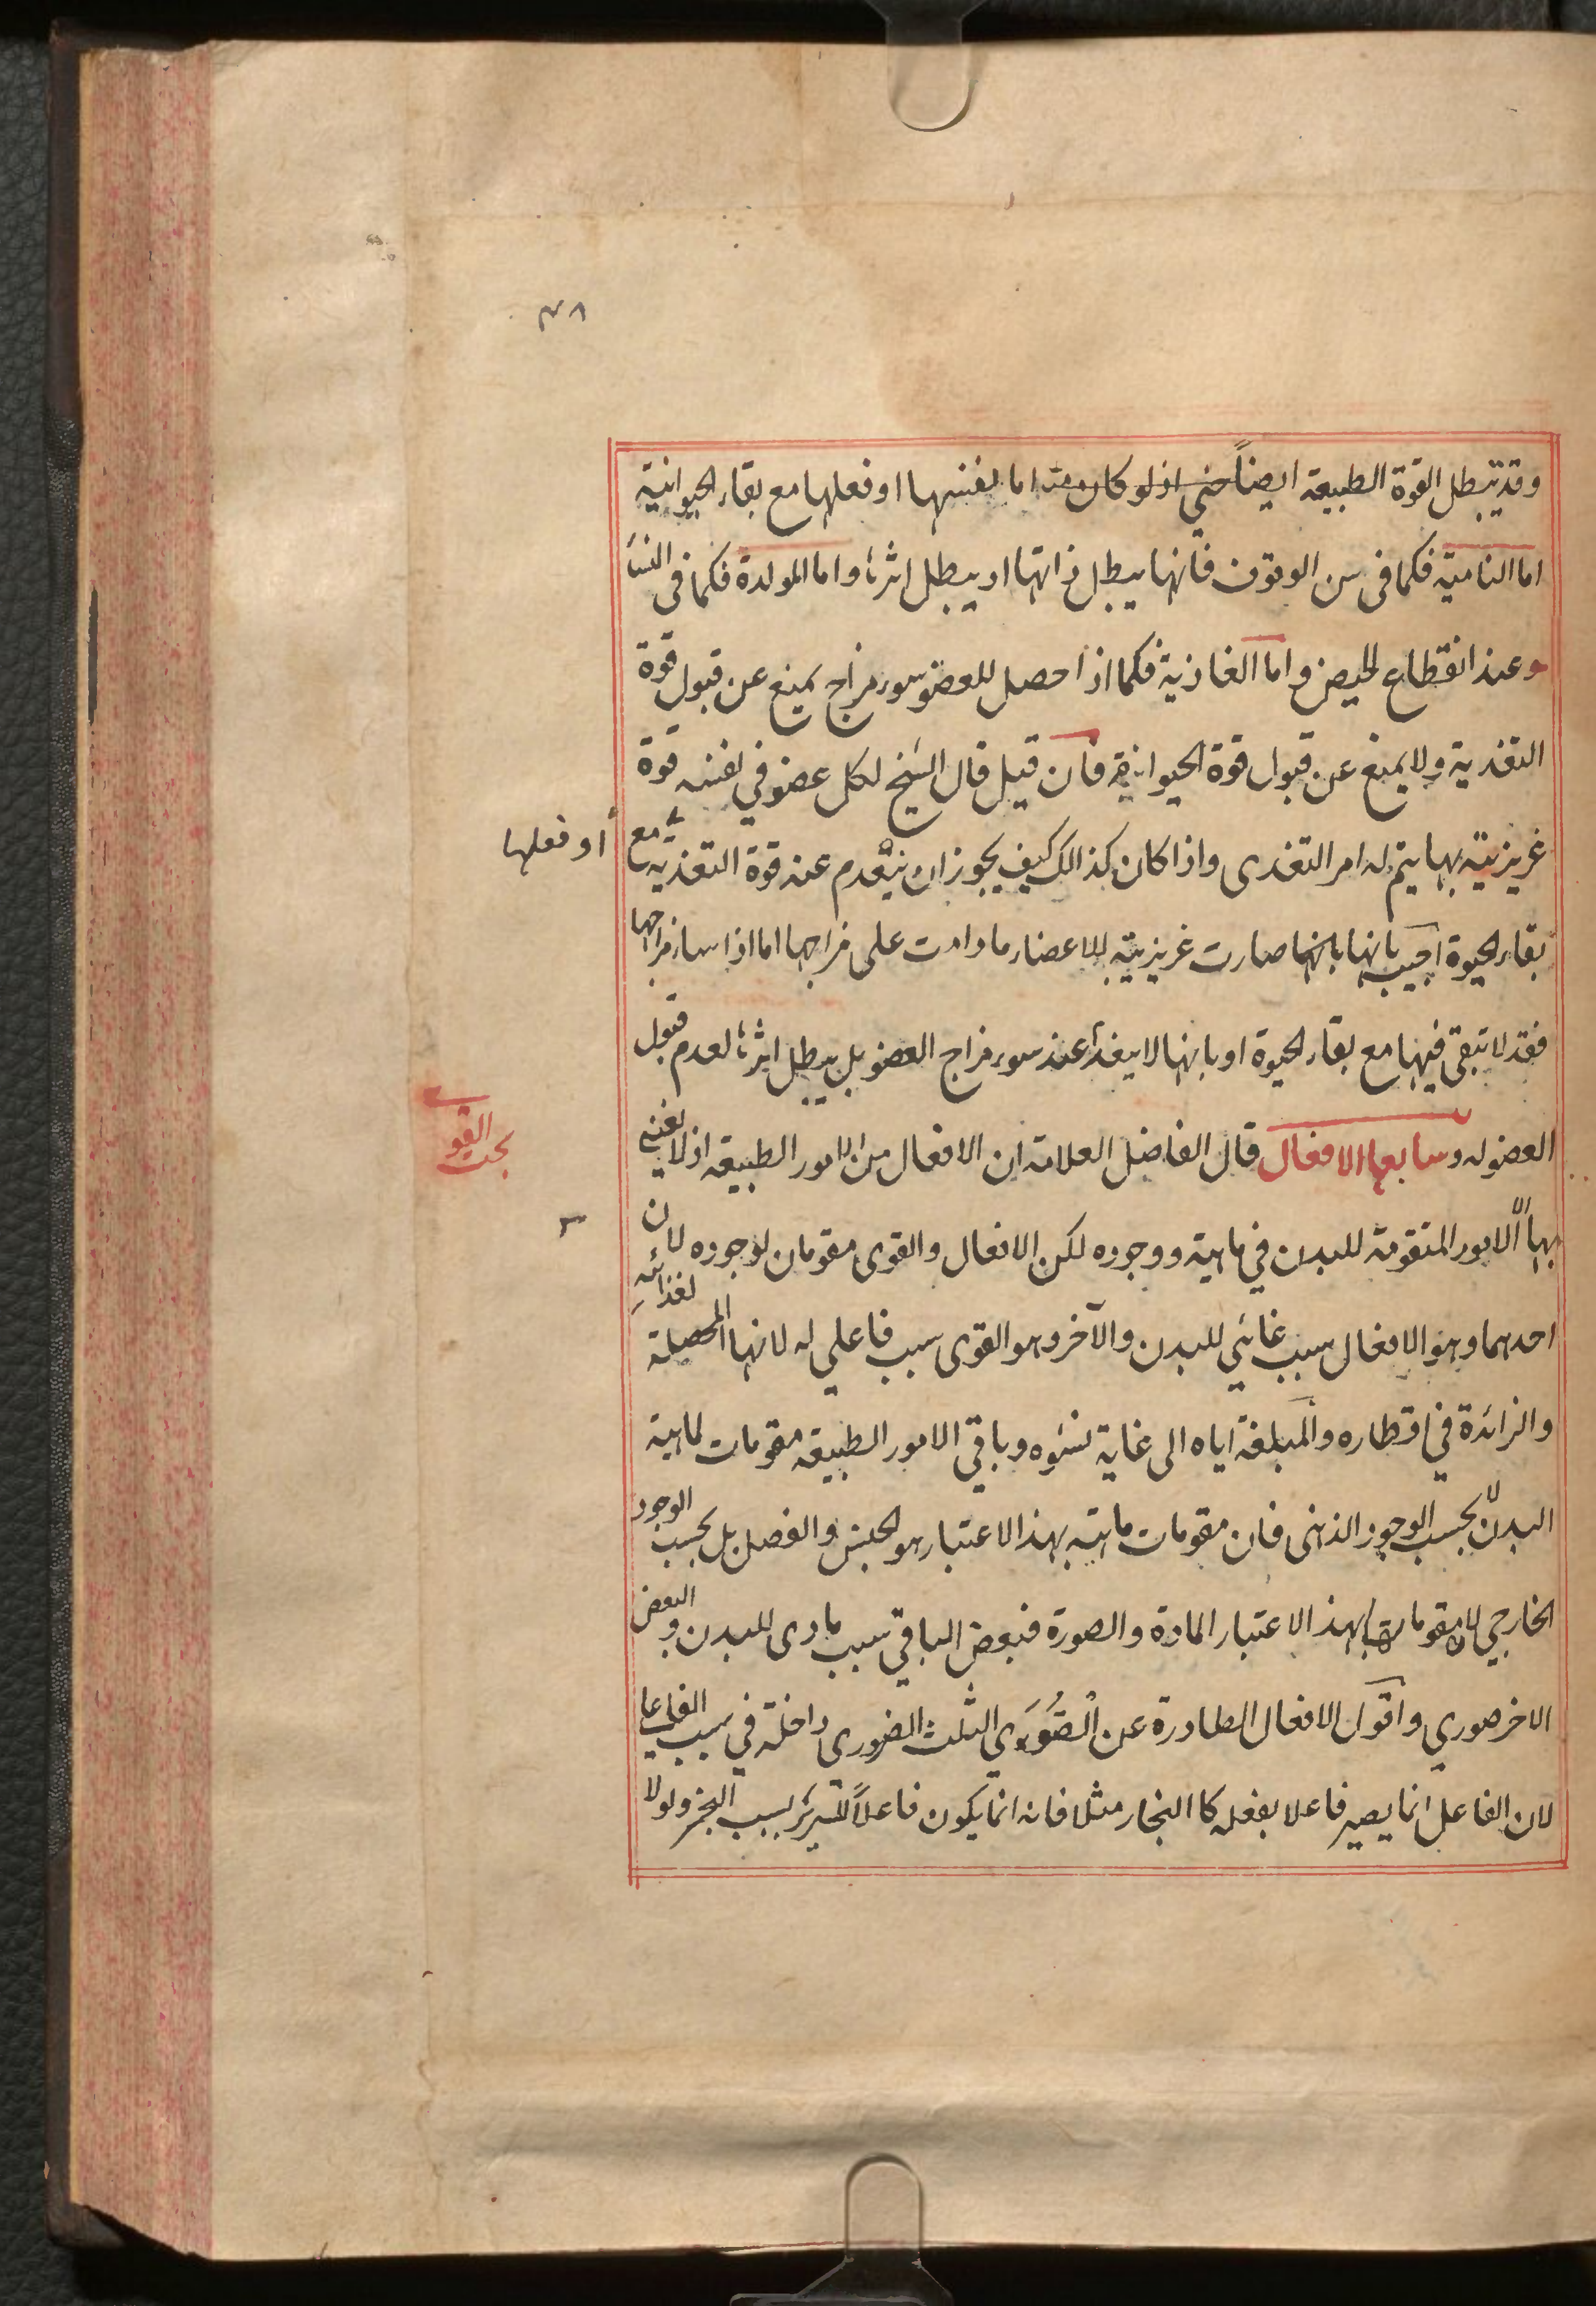 ٣٨
وقد تبطل القوة الطبيعة ايضاً حتى اذ لو كان اما بنفسها او فعلها مع بقاء الحيوانية
اما النامية فكما فى سن الوقوف فانها يبطل ذاتها او يبطل اثرها واما المولدة فكما فى النساء
وعند انقطاع الحيض و اما الغاذية فكما اذا حصل للعضو سوء مزاج يمنع عن قبول قوة
التغذية ولا يمنع عن قبول قوة الحيوانية فان قيل قال الشيخ لكل عضو في نفسه قوة
غريزية بها يتم له امر التغذى واذا كان كذالك كيف يجوز ان ينعدم عنه قوة التغذية مع
أو فعلها
بقاء الحيوة اجيب بانها بانها صارت غريزية للاعضاء ما دامت على مزاجها اما اذا ساء مزاجها
فقد لا تبقى فيها مع بقاء الحيوة او بانها لا يغذ عند سوء مزاج العضو بل يبطل اثرها لعدم قبول
العضو له وسابعها الافعال قال الفاضل العلامة ان الافعال من الامور الطبيعة اذ لا نعنى
بحث القو
بها الا الامور المتقومة للبدن في ماهية ووجوده لكن الافعال والقوى مقومان لوجوده لان
احدهما وهو الافعال سبب غائي للبدن والآخر وهو القوى سبب فاعلي له لانها المحصلة لغذائه
والزائدة في اقطاره والمبلغة اياه الى غاية نشوه وباقي الامور الطبيعة مقومات لماهية
البدن لا بحسب الوجود الذهنى فان مقومات ماهيته بهذا الاعتبار هو الجنس والفصل بل بحسب الوجود
الخارجي لان مقوماتها بهذا الاعتبار المادة والصورة فبعض الباقي سبب مادى للبدن والبعض
الاخر صوري و اقول الافعال الصادرة عن القوى الثلث الضرورى داخلة في سبب الفاعلي
لان الفاعل انما يصير فاعلا بفعله كا النجار مثلا فانه انما يكون فاعلاً للسرير بسبب النجر ولولا